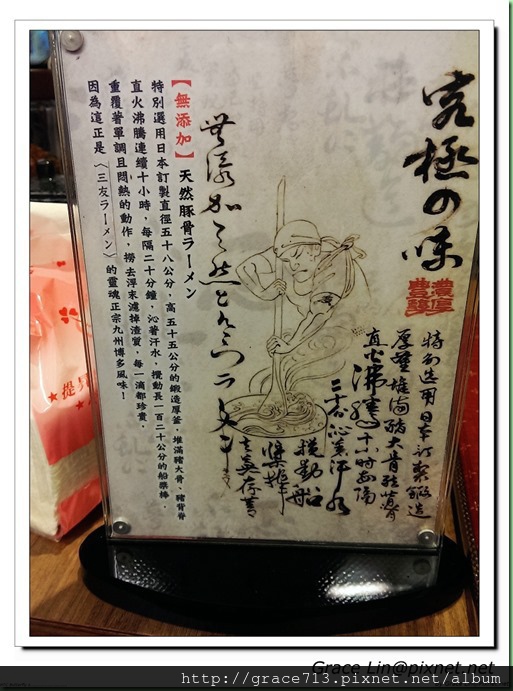 究極の味
濃厚
豊醇
特別選用日本訂製鍛造
厚釜堆滿豬大骨豬背骨
直火沸騰十小時每隔
二十分沁著汗水
攪動船
樂棒
【無添加】 天然豚骨ラーメン
特別選用日本訂製直徑五十八公分，高五十五公分的鍛造厚釜，堆滿豬大骨、豬背脊
直火沸騰連續十小時，每隔二十分鐘，沁著汗水，攪動長一百二十公分的船樂棒，
重覆著單調且悶熱的動作，撈去浮末濾掉渣質，每一滴都珍貴，
因為這正是〈三友ラーメン〉的靈魂正宗九州博多風味！
Grace Lin@pixnet.net
http://grace713.pixnet.net/album